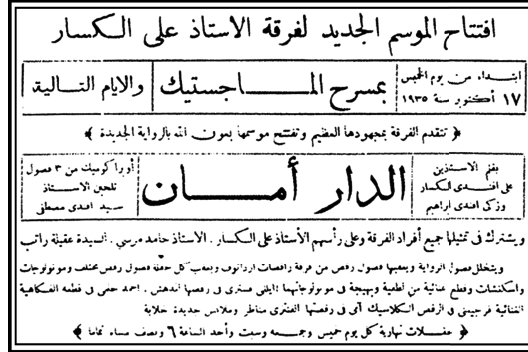 افتتاح الموسم الجديد لفرقة الاستاذ على الكسار
ابتداء من يوم الخميس
١٧ أكتوبر سنة ١٩٣٥
بمسرح الماجستيك
والايام التالية
﴿ تتقدم الفرقة بمجهودها العظيم وتفتتح موسمها بعون الله بالرواية الجديدة ﴾
بقلم الاستاذين
على افندى الكسار
وزكى افندى ابراهيم
الدار أمان
أوبرا كوميك من ٣ فصول
تلحين الاستاذ
سيد افندى مصطفى
ويشترك فى تمثيلها جميع أفراد الفرقة وعلى رأسهم الأستاذ على الكسار . الاستاذ حامد مرسى . السيدة عقيلة راتب
ويتخلل فصول الرواية ويعقبها فصول رقص من فرقة راقصات ويعقب كل حفلة فصول رقص مختلف ومونولوجات
واسكتشات وقطع غنائية من لطيفة وبهيجة فى مونولوجاتهما فى رقصها المدهش . احمد حلمى فى قطعه الفكاهية
الغنائية فى الرقص الكلاسيك فى رقصتها مناظر وملابس جديدة خلابة
﴿ حفلات نهارية كل يوم خميس وجمعه وسبت وأحد الساعة ٦ ونصف مساء تماما ﴾